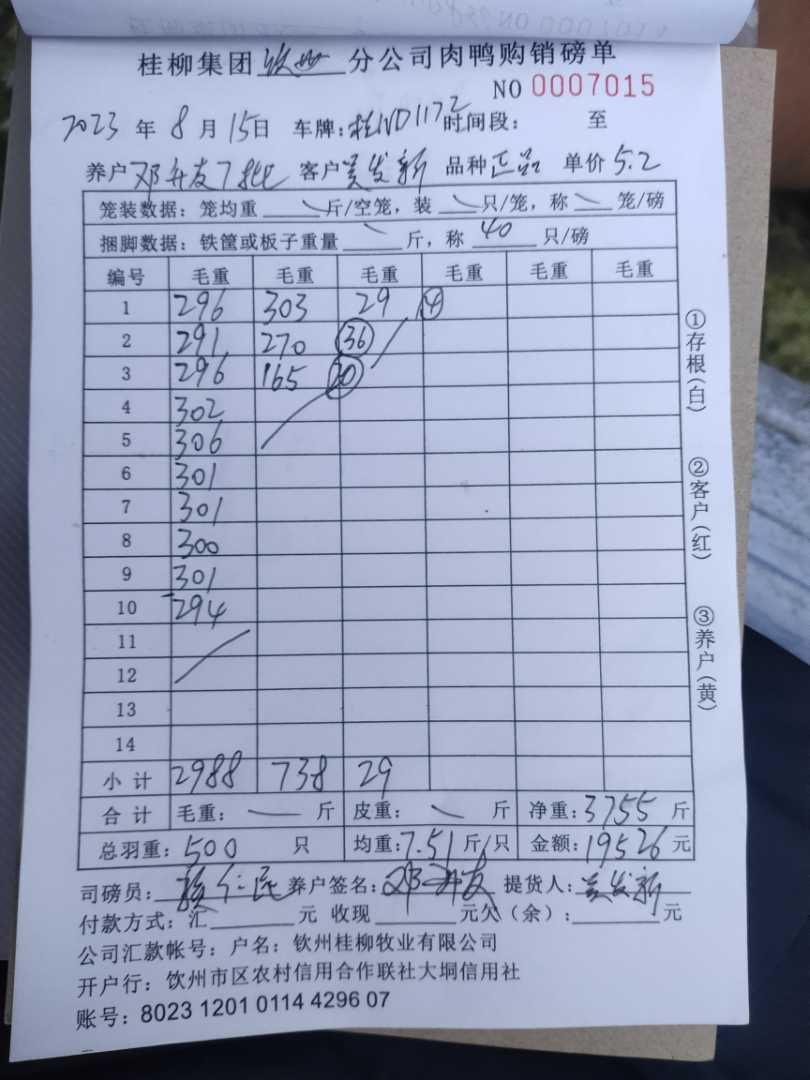 桂柳集团钦州分公司肉鸭购销磅单
NO 0007015
2023年8月15日 车牌:桂ND1172 时间段: 至
养户邓开友7批 客户吴发新 品种正品 单价5.2
笼装数据:笼均重 斤/空笼,装 只/笼,称 笼/磅
捆脚数据:铁筐或板子重量 斤,称 40 只/磅
编号 毛重 毛重 毛重 毛重 毛重 毛重
1 296 303 29 4
2 291 270 36
3 296 165 20
4 302
5 306
6 301
7 301
8 300
9 301
10 294
11
12
13
14
小计 2988 738 29
合计 毛重: 斤 皮重: 斤 净重:3755斤
总羽重:500 只 均重:7.51斤/只 金额:19526元
司磅员: 仁民 养户签名:邓开友 提货人:吴发新
付款方式:汇 元 收现 元欠(余): 元
公司汇款帐号:户名:钦州桂柳牧业有限公司
开户行:钦州市区农村信用合作联社大垌信用社
账号:8023 1201 0114 4296 07
①存根(白)
②客户(红)
③养户(黄)